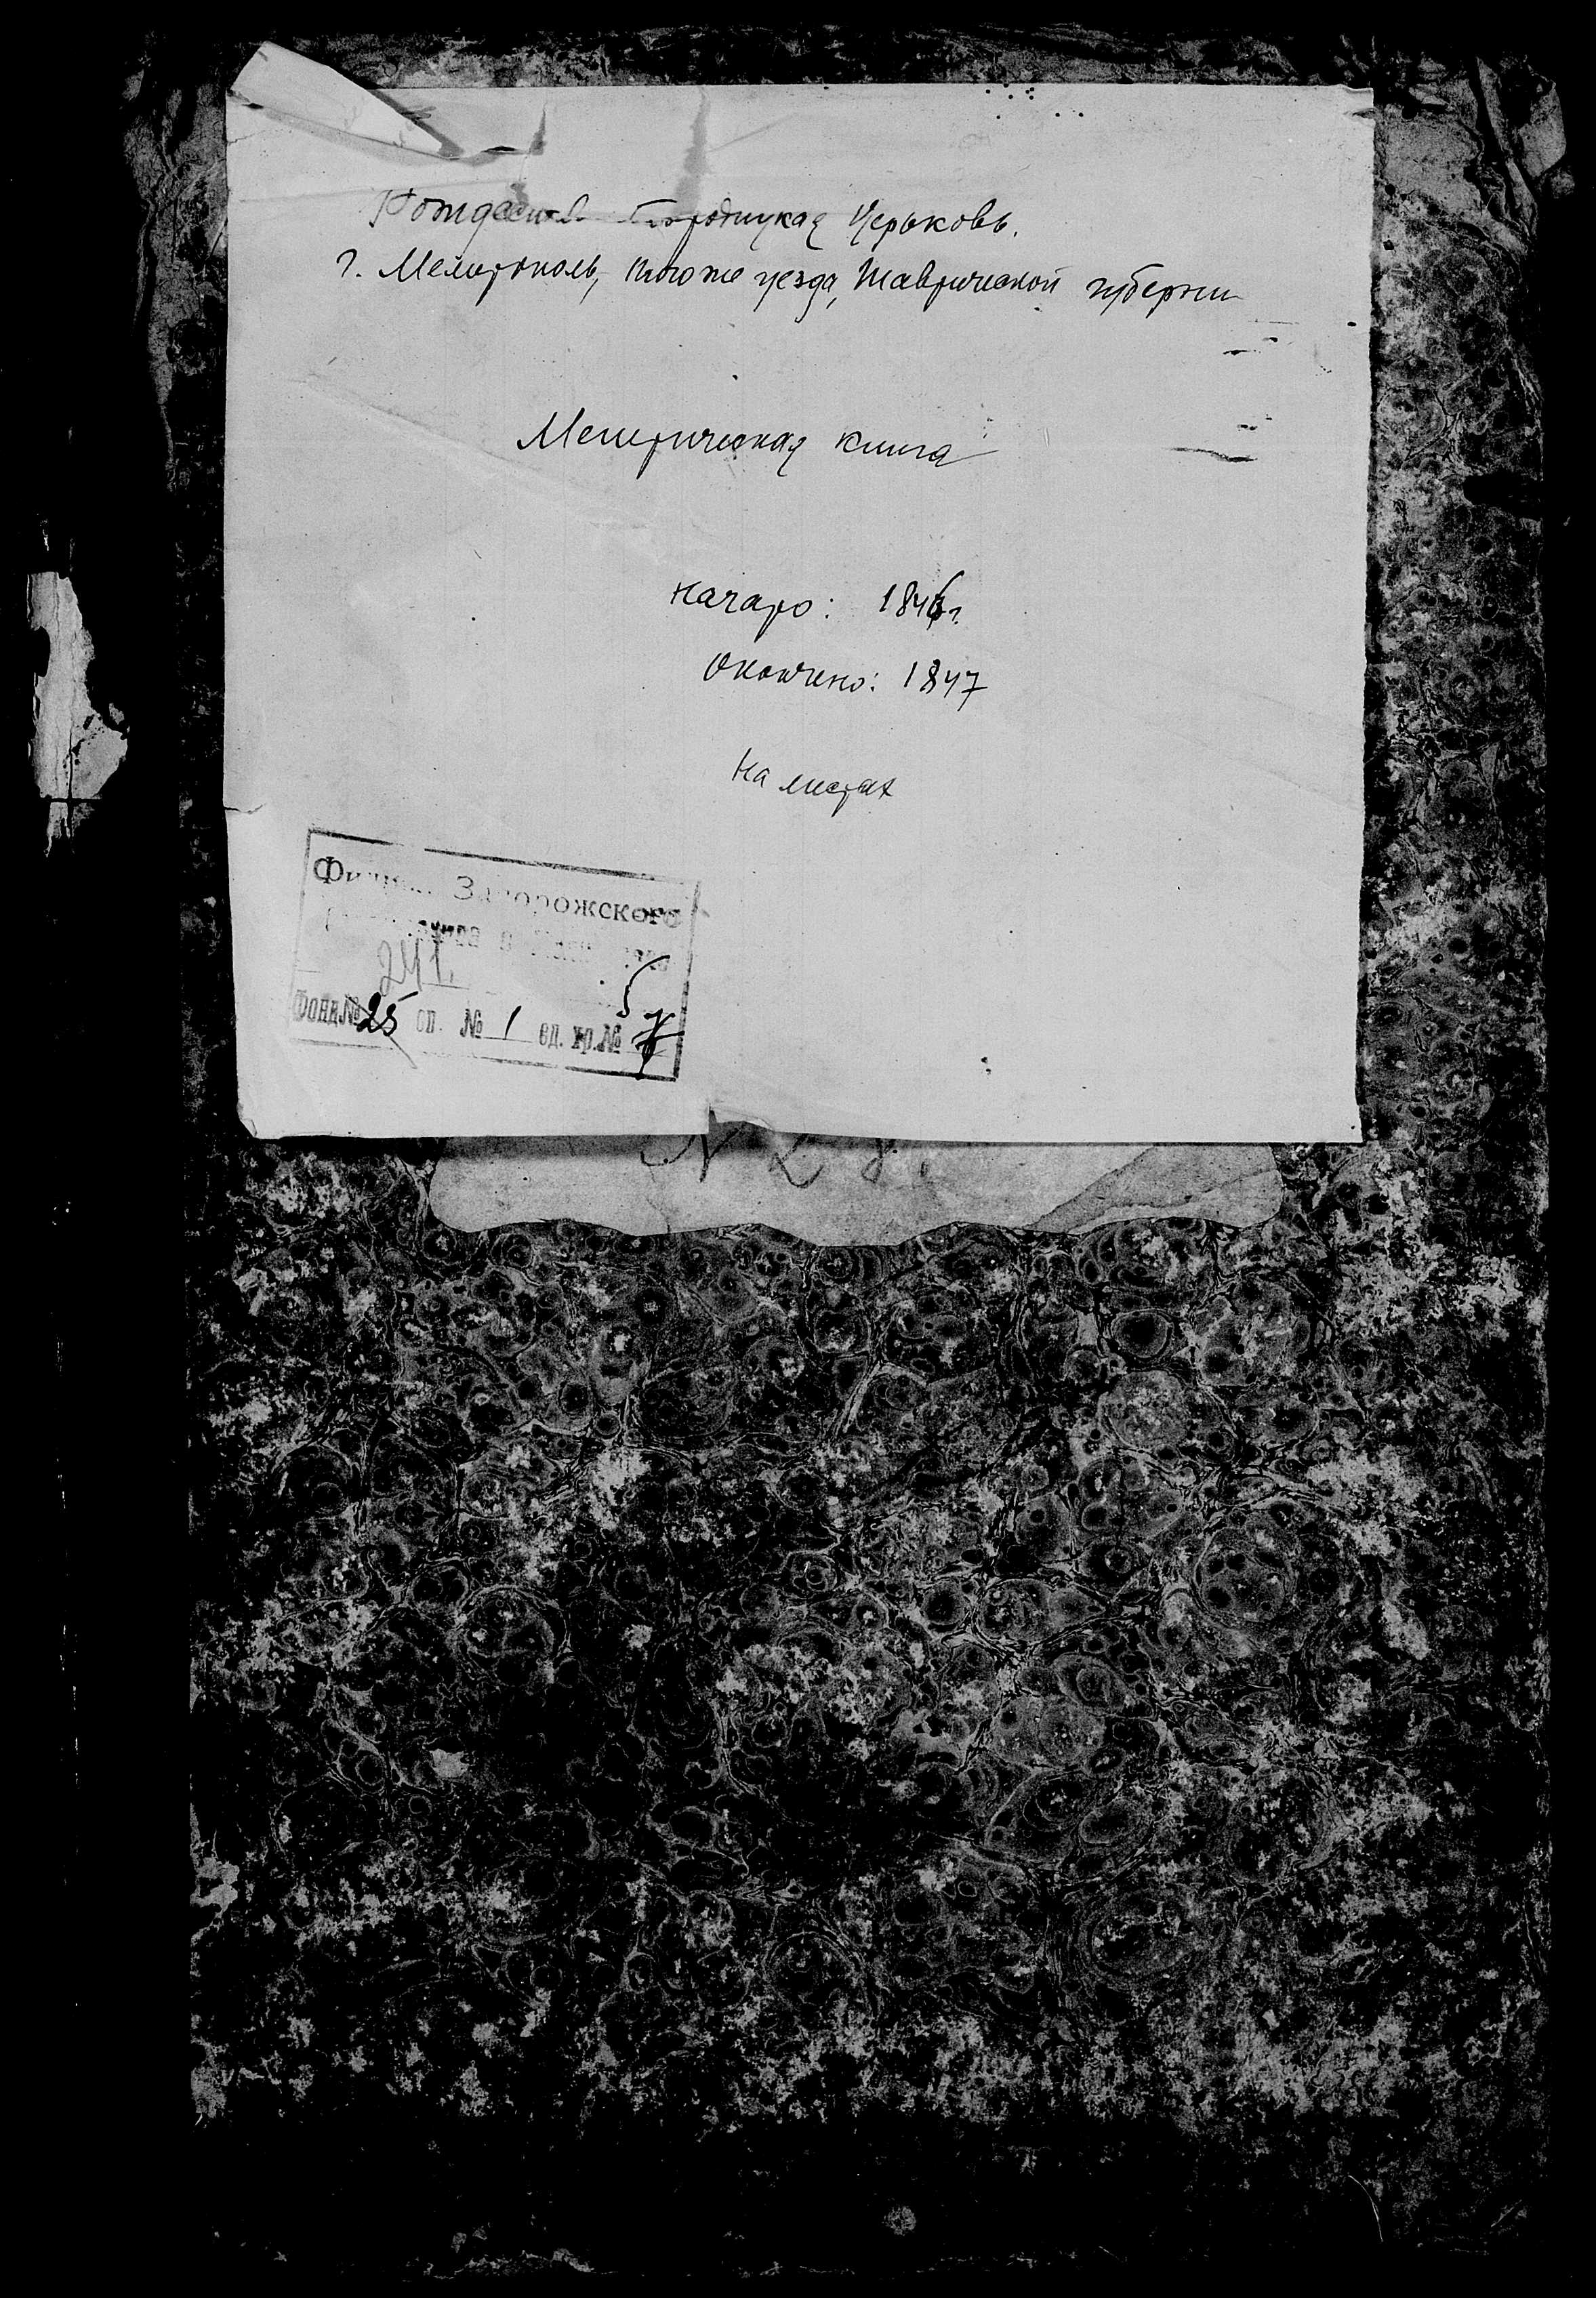 Рождество Богородицкая Церьковь.
г. Мелитополь, того же уезда, Таврической губернии
Метрическая книга
Начато: 1846 г.
Окончено: 1847
На листах
Филиал Запорожского
241.
5
Фонд № 25 оп. № 1 ед. хр. №
N 28.